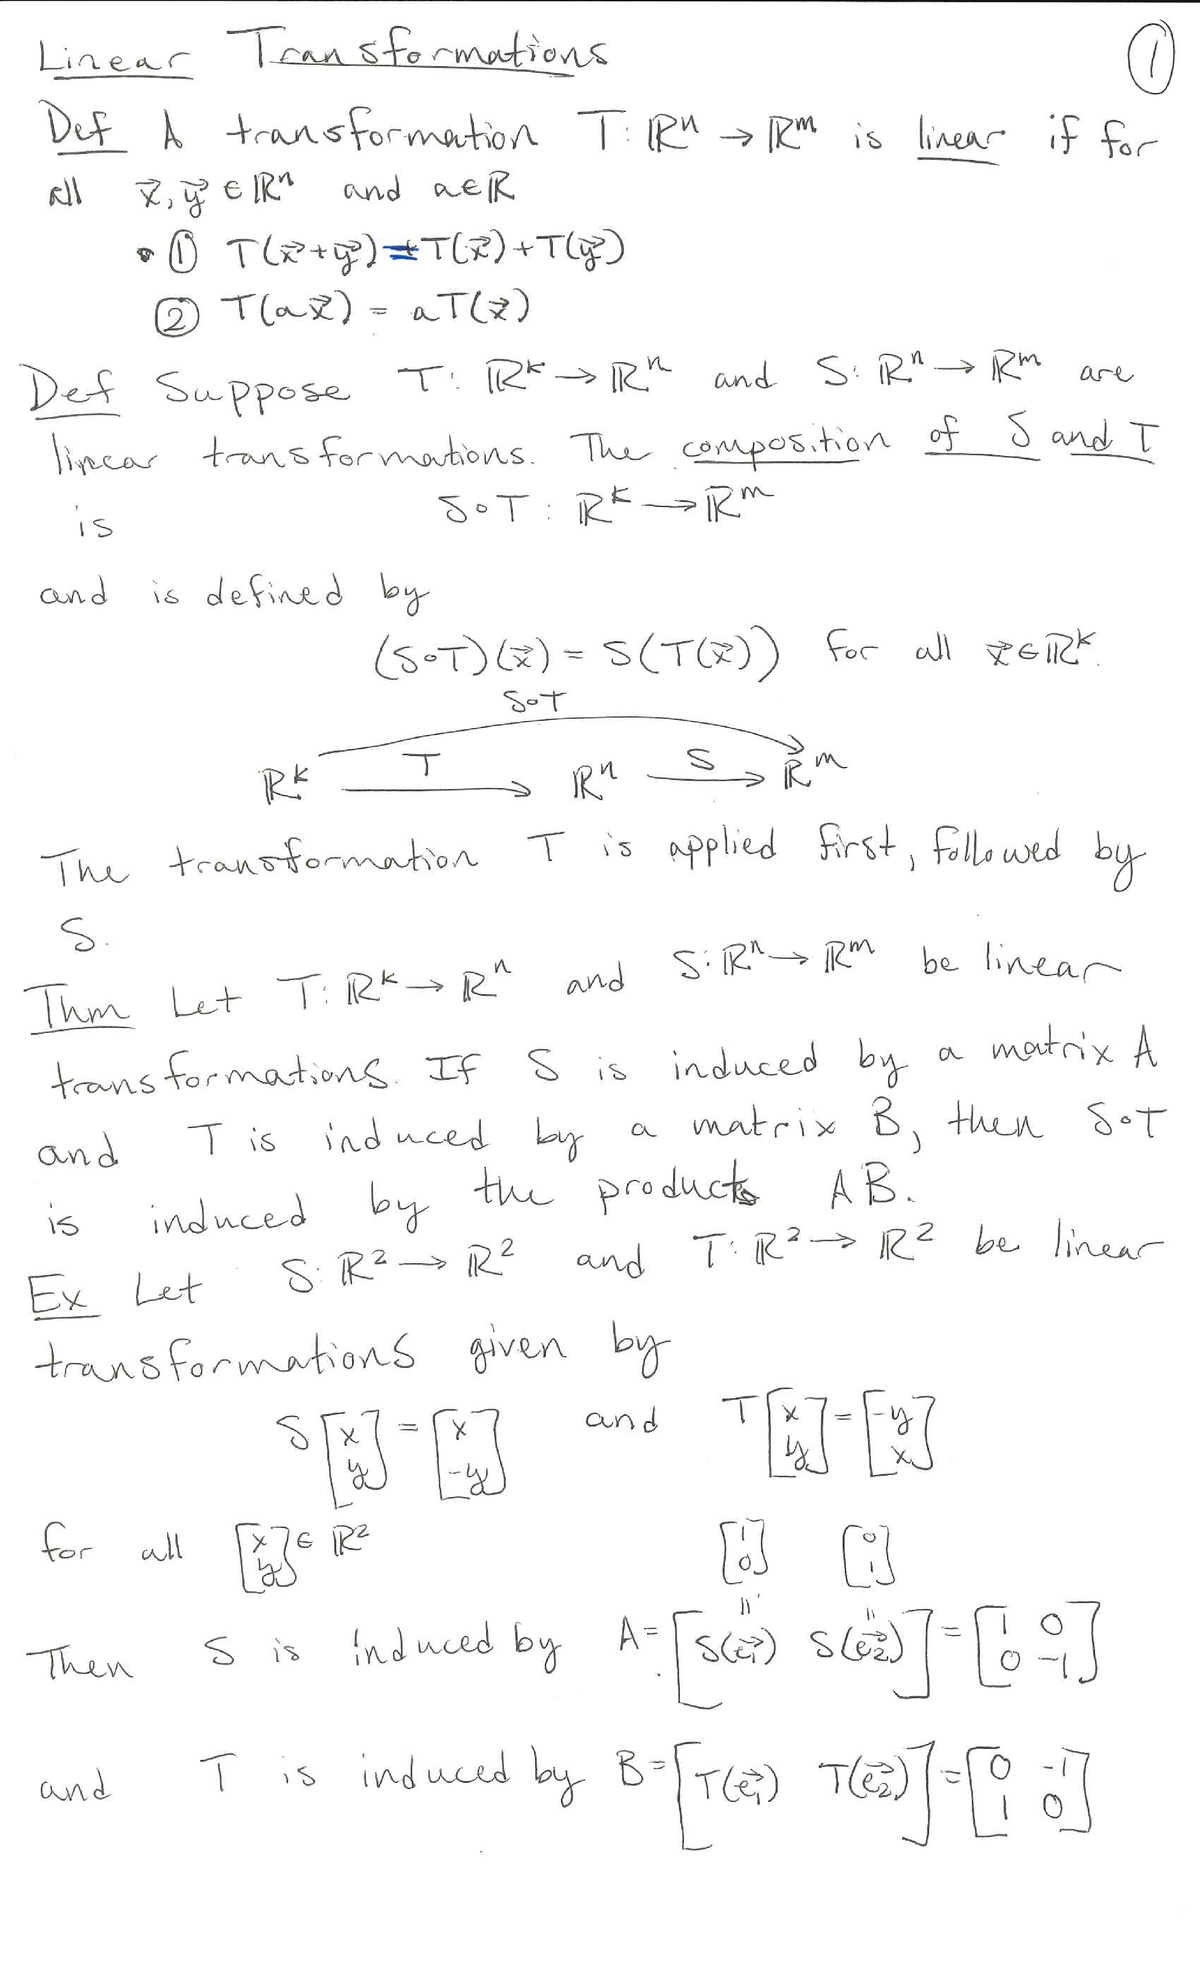 Linear Transformations ①
Def A transformation T: ℝⁿ → ℝᵐ is linear if for
all x⃗, y⃗ ∈ ℝⁿ and a∈ℝ
• ① T(x⃗+y⃗) = T(x⃗)+T(y⃗)
② T(ax⃗) = aT(x⃗)
Def Suppose T: ℝᵏ → ℝⁿ and S: ℝⁿ → ℝᵐ are
linear transformations. The composition of S and T
is S∘T : ℝᵏ → ℝᵐ
and is defined by
(S∘T)(x⃗) = S(T(x⃗)) for all x⃗∈ℝᵏ.
S∘T
ℝᵏ T→ ℝⁿ S→ ℝᵐ
The transformation T is applied first, followed by
S.
Thm Let T: ℝᵏ → ℝⁿ and S: ℝⁿ → ℝᵐ be linear
transformations. If S is induced by a matrix A
and T is induced by a matrix B, then S∘T
is induced by the product AB.
Ex Let S: ℝ² → ℝ² and T: ℝ² → ℝ² be linear
transformations given by
S[x y] = [x -y] and T[x y] = [-y x]
for all [x y] ∈ ℝ² [1 0] [0 1]
" "
Then S is induced by A = [S(e⃗₁) S(e⃗₂)] = [1 0 0 -1]
and T is induced by B = [T(e⃗₁) T(e⃗₂)] = [0 -1 1 0]